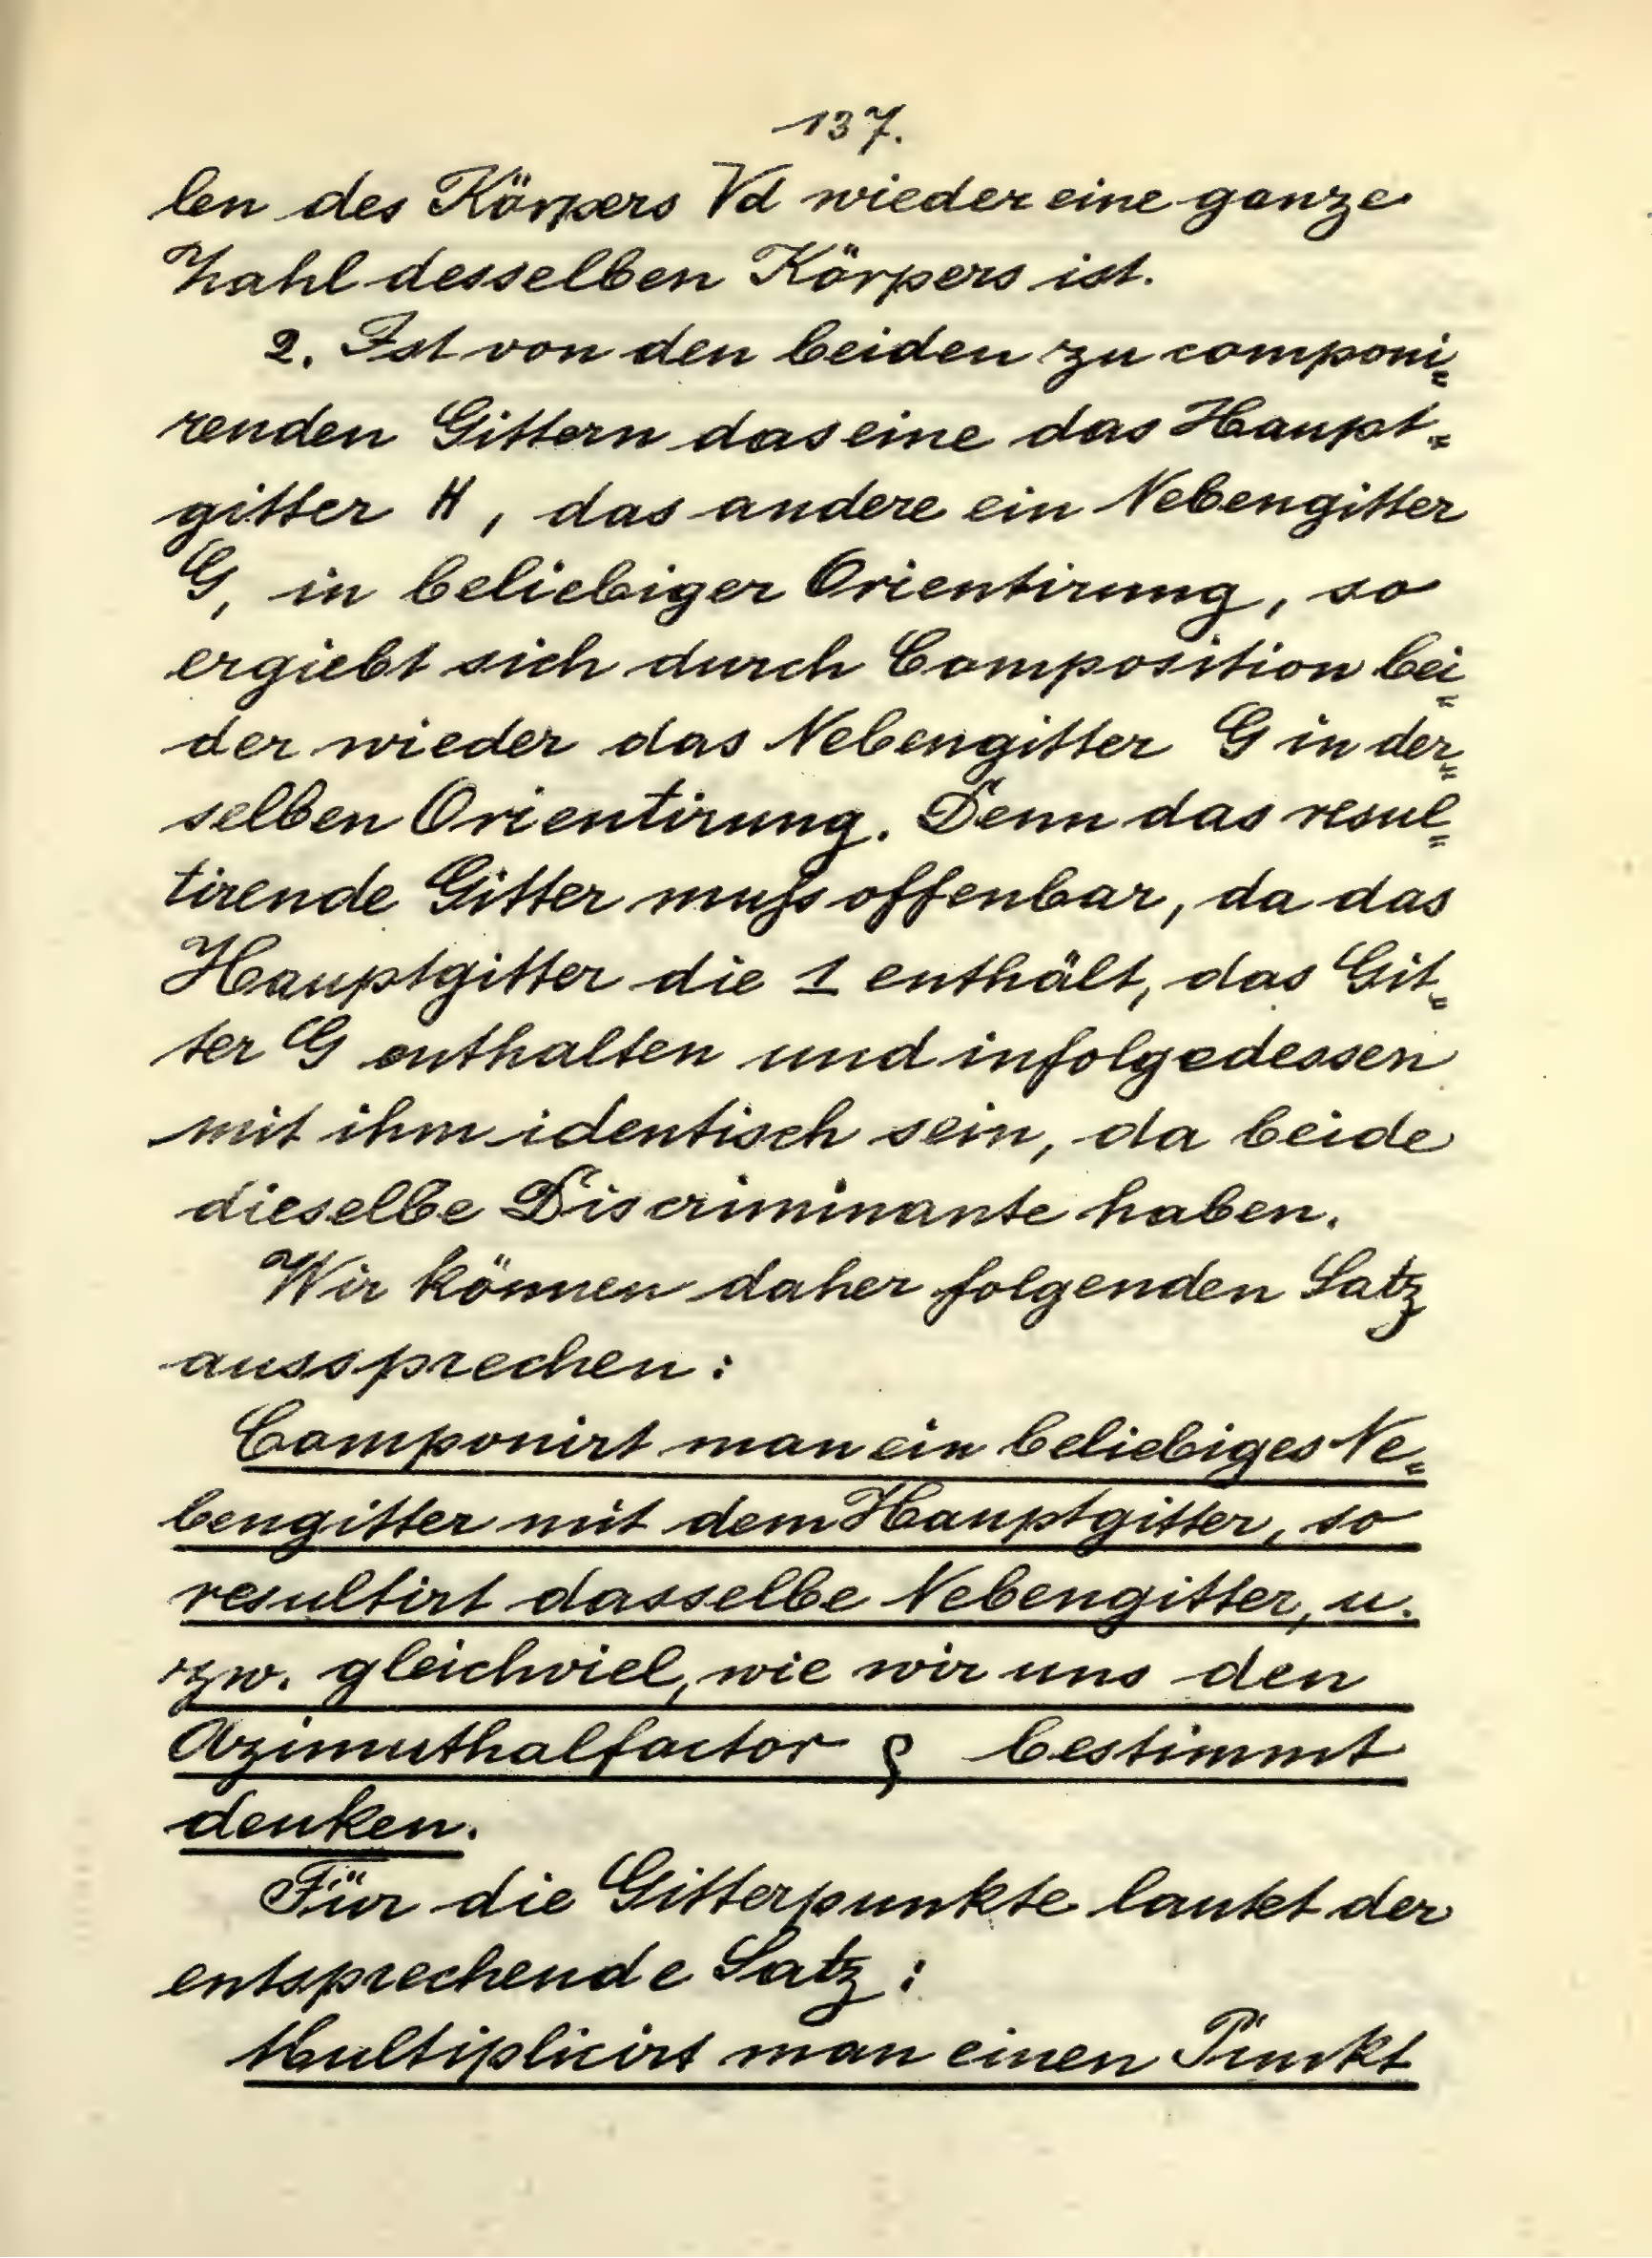 137.
len des Körpers √d wieder eine ganze
Zahl desselben Körpers ist.
2. Ist von den beiden zu componi=
renden Gittern das eine das Haupt=
gitter H, das andere ein Nebengitter
G, in beliebiger Orientirung, so
ergiebt sich durch Composition bei=
der wieder das Nebengitter G in der=
selben Orientirung. Denn das resul=
tirende Gitter muſs offenbar, da das
Hauptgitter die 1 enthält, das Git=
ter G enthalten und infolgedessen
mit ihm identisch sein, da beide
dieselbe Discriminante haben.
Wir können daher folgenden Satz
aussprechen:
Componirt man ein beliebiges Ne=
bengitter mit dem Hauptgitter, so
resultirt dasselbe Nebengitter, u.
zw. gleichviel, wie wir uns den
Azimuthalfactor ρ bestimmt
denken.
Für die Gitterpunkte lautet der
entsprechende Satz:
Multiplicirt man einen Punkt